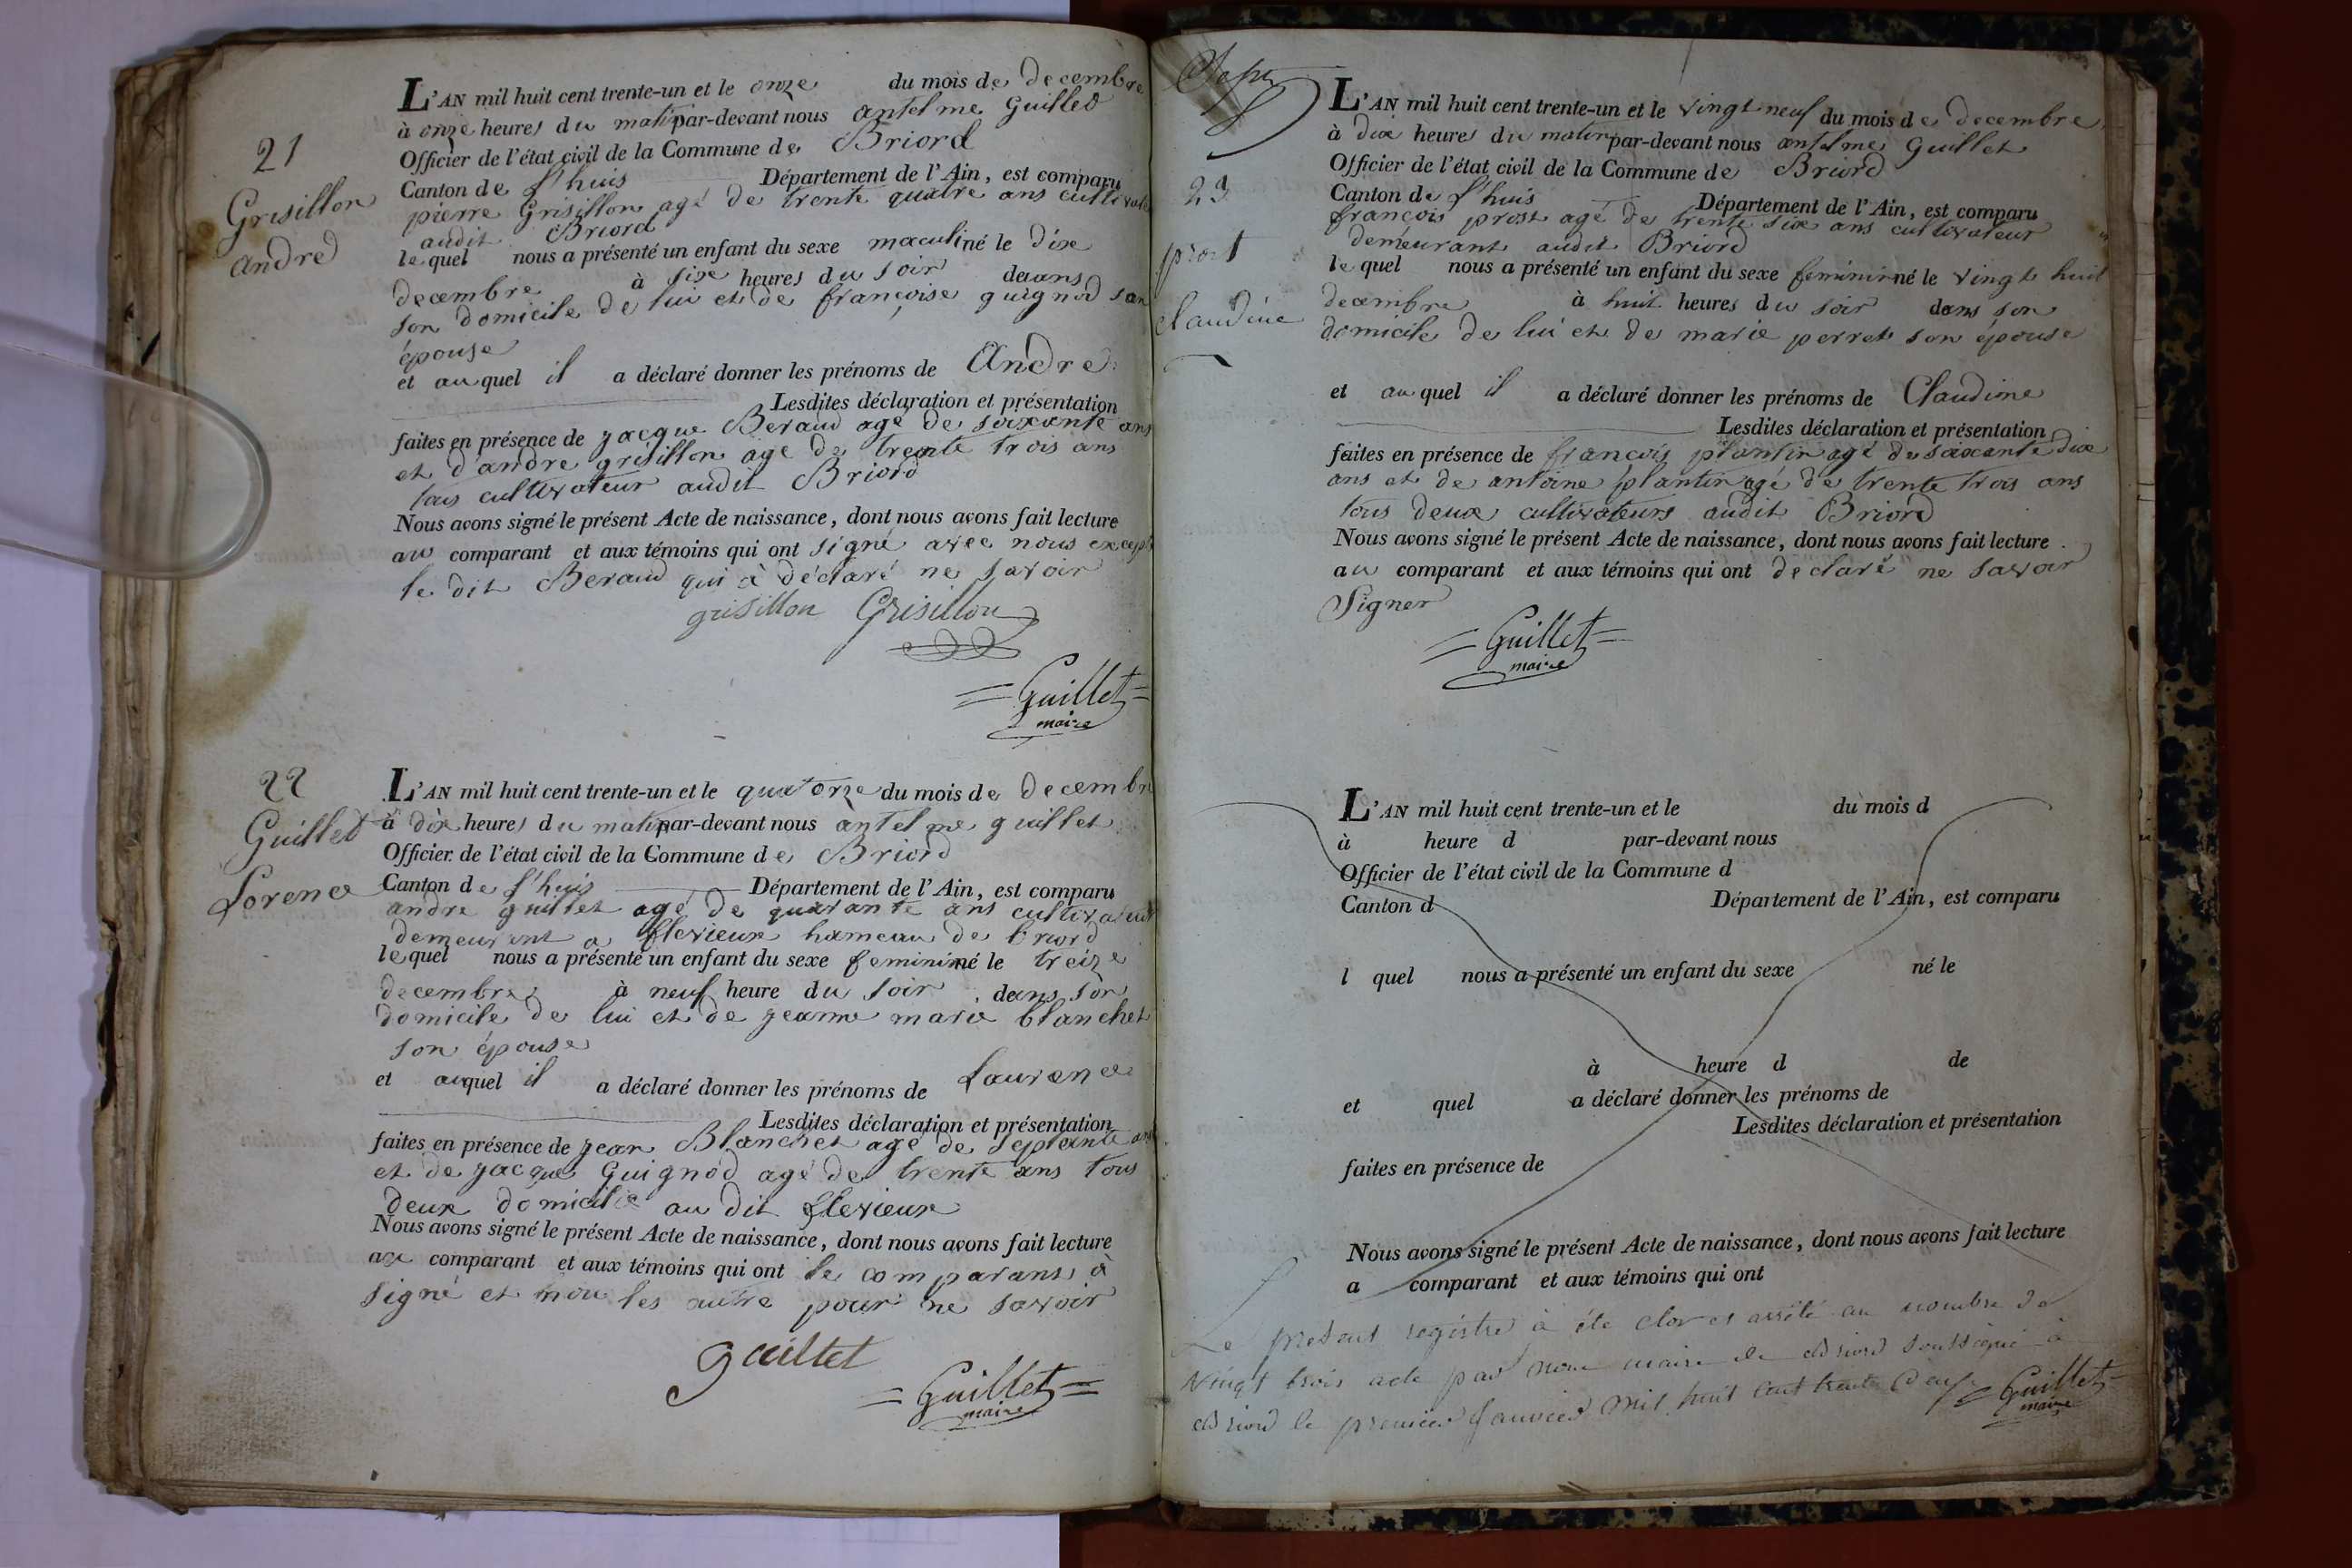 21
Grisillon
andre
L'AN mil huit cent trente-un et le onze du mois de decembre
à onze heures du matin par-devant nous antelme Guillet
Officier de l'état civil de la Commune de Briord
Canton de l'huis Département de l'Ain, est comparu
pierre Grisillon agé de trente quatre ans cultivate
audit Briord
lequel nous a présenté un enfant du sexe masculiné le dix
decembre à six heures du soir dans
son domicile de lui et de françoise guignod son
épouse
et auquel il a déclaré donner les prénoms de Andre
Lesdites déclaration et présentation
faites en présence de jacque Beraud agé de soixante ans
et d'andre grisillon agé de trente trois ans
tous cultivateur audit Briord
Nous avons signé le présent Acte de naissance, dont nous avons fait lecture
au comparant et aux témoins qui ont signé avec nous except
le dit Beraud qui à déclaré ne savoir
grisillon Grisillon
Guillet
maire
22
Guillet
Lorence
L'AN mil huit cent trente-un et le quatorze du mois de decembre
à dix heures du matin par-devant nous antelme guillet
Officier de l'état civil de la Commune de Briord
Canton de l'huis Département de l'Ain, est comparu
andre guillet agé de quarante ans cultivateur
demeurant a flevieux hameau de briord
lequel nous a présenté un enfant du sexe femininné le treize
decembre à neuf heure du soir dans son
domicile de lui et de jeanne marie blanchet
son épouse
et auquel il a déclaré donner les prénoms de Laurence
Lesdites déclaration et présentation
faites en présence de jean Blanchet agé de septante ans
et de jacque Guignod agé de trente ans tous
deux domicilie au dit flevieux
Nous avons signé le présent Acte de naissance, dont nous avons fait lecture
au comparant et aux témoins qui ont le comparans à
signé et non les autre pour ne savoir
guillet
Guillet
maire
23
prost
claudine
L'AN mil huit cent trente-un et le vingt neuf du mois de decembre
à dix heures du matin par-devant nous antelme Guillet
Officier de l'état civil de la Commune de Briord
Canton de l'huis Département de l'Ain, est comparu
françois prost agé de trente six ans cultivateur
demeurant audit Briord
lequel nous a présenté un enfant du sexe femininné le vingt huit
decembre à huit heures du soir dans son
domicile de lui et de marie perret son épouse
et auquel il a déclaré donner les prénoms de Claudine
Lesdites déclaration et présentation
faites en présence de françois plantin agé de soixante dix
ans et de antoine plantin agé de trente trois ans
tous deux cultivateurs audit Briord
Nous avons signé le présent Acte de naissance, dont nous avons fait lecture
au comparant et aux témoins qui ont déclaré ne savoir
Signer
Guillet
maire
L'AN mil huit cent trente-un et le du mois d
à heure d par-devant nous
Officier de l'état civil de la Commune d
Canton d Département de l'Ain, est comparu
l quel nous a présenté un enfant du sexe né le
à heure d de
et quel a déclaré donner les prénoms de
Lesdites déclaration et présentation
faites en présence de
Nous avons signé le présent Acte de naissance, dont nous avons fait lecture
a comparant et aux témoins qui ont
Le present registre à éte clos et arrêté au nombre de
vingt trois acte par nous maire de Briord soussigné à
Briord le premier janvier mil huit cent trente deux
Guillet
maire